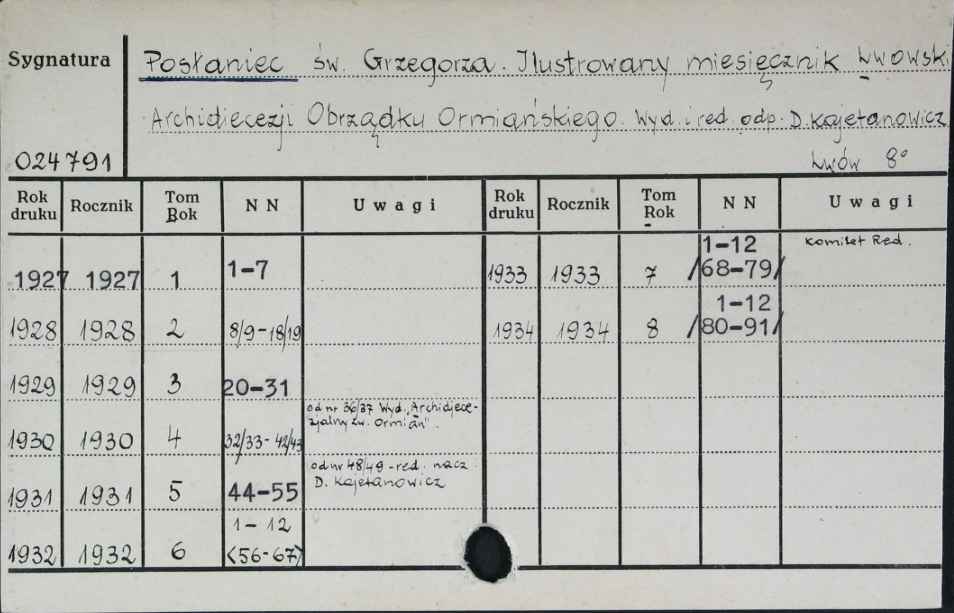 Sygnatura
Posłaniec św. Grzegorza. Ilustrowany miesięcznik Lwowski
Archidiecezji Obrządku Ormiańskiego. Wyd. i red. odp. D. Kajetanowicz
024791
Lwów 8°
Rok druku Rocznik Tom Rok NN Uwagi Rok druku Rocznik Tom Rok NN Uwagi
1927 1927 1 1-7 1933 1933 7 1-12 /68-79/ Komitet Red.
1928 1928 2 8/9-18/19 1934 1934 8 1-12 /80-91/
1929 1929 3 20-31
1930 1930 4 32/33-42/43 od nr 36/37 Wyd. „Archidjece-
zjalny Zw. Ormian".
1931 1931 5 44-55 od nr 48/49 - red. nacz
D. Kajetanowicz
1932 1932 6 1-12 <56-67>